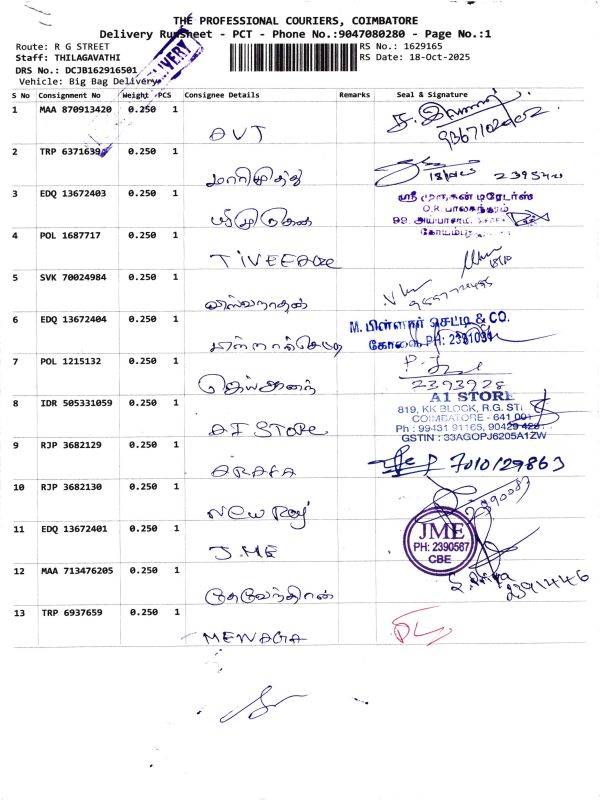 THE PROFESSIONAL COURIERS, COIMBATORE
Delivery Runsheet - PCT - Phone No.:9047080280 - Page No.:1
Route: R G STREET
RS No.: 1629165
Staff: THILAGAVATHI
RS Date: 18-Oct-2025
DRS No.: DCJB162916501
Vehicle: Big Bag Delivery
DELIVERY
S No Consignment No Weight PCS Consignee Details Remarks Seal & Signature
1 MAA 870913420 0.250 1
AVT
2 TRP 6371639 0.250 1
மாரிமுத்து
18/10
3 EDQ 13672403 0.250 1
ஸ்ரீ முருகன் டிரேடர்ஸ்
O.K. பாலசுந்தரம்
99, அய்யாசாமி
4 POL 1687717 0.250 1
18/10
5 SVK 70024984 0.250 1
விஸ்வநாதன்
6 EDQ 13672404 0.250 1
M. பிள்ளையார் செட்டி & CO.
கோவை PH: 2391091
7 POL 1215132 0.250 1
2393928
8 IDR 505331059 0.250 1
A1 STORE
A1 STORE
819, KK BLOCK, R.G. ST
COIMBATORE - 641 001
Ph : 99431 91165, 90429
GSTIN : 33AGOPJ6205A1ZW
9 RJP 3682129 0.250 1
ARAFA
7010129863
10 RJP 3682130 0.250 1
New Roy
2390087
11 EDQ 13672401 0.250 1
J.ME
JME
PH: 2390567
CBE
12 MAA 713476205 0.250 1
2391446
13 TRP 6937659 0.250 1
MENAGA